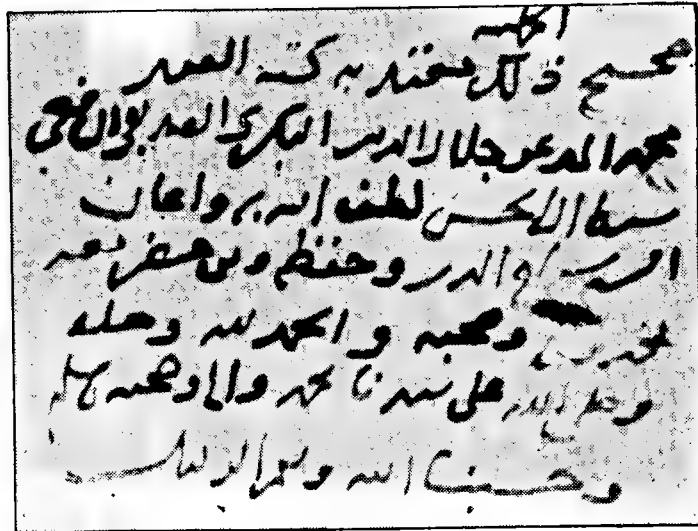 صحيح ذلك كتبه الفقير
محمد المدعو جلال الدين البكري الصديقي الشافعي
سبط ال الحسن لطف الله به واعانه
الدين وحفظ ومن حضر
وصحبه والحمد لله وحده
وصلى الله على سيدنا محمد واله وصحبه وسلم
وحسبنا الله ونعم الوكيل